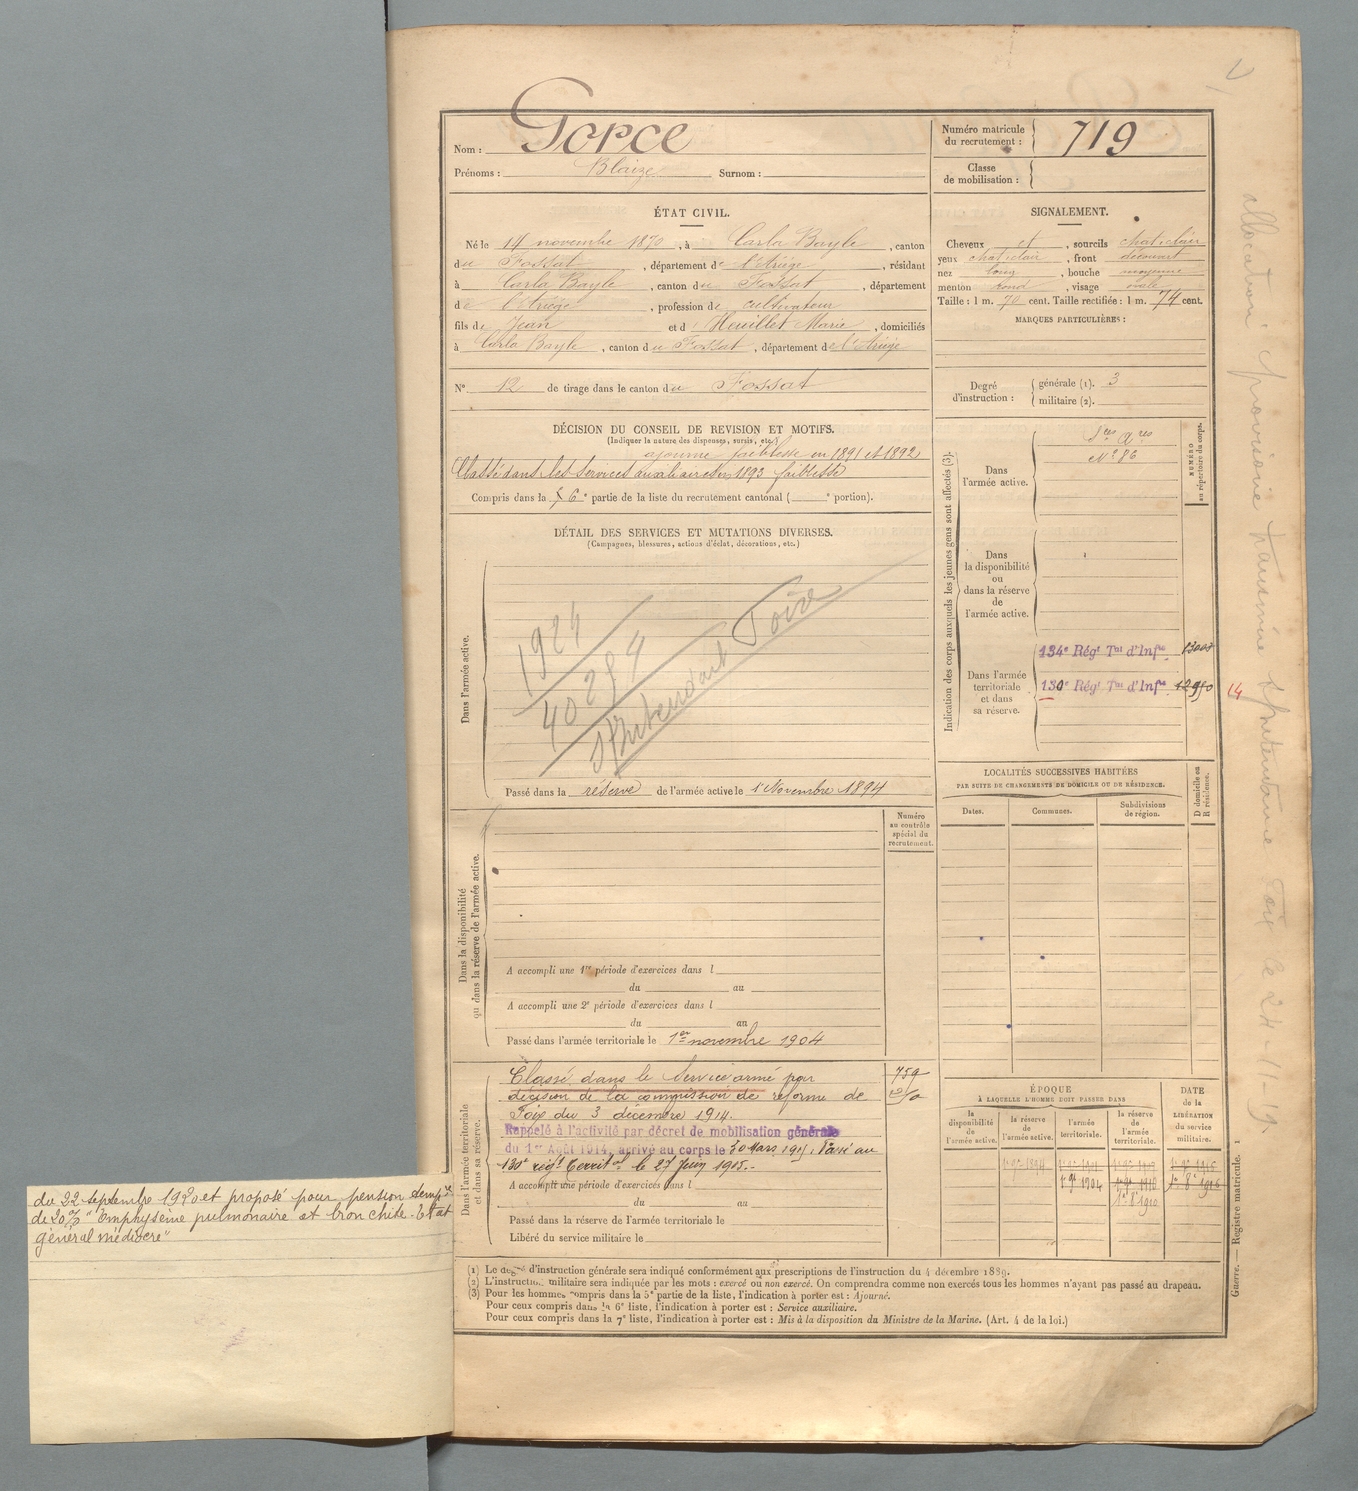 Nom : Gorce
Prénoms : Blaize Surnom :
Numéro matricule du recrutement : 719
Classe de mobilisation :
ÉTAT CIVIL.
Né le 14 novembre 1870, à Carla Bayle, canton
du Fossat, département de l'Ariège, résidant
à Carla Bayle, canton du Fossat, département
de l'Ariège, profession de cultivateur
fils de Jean et d' Heuillet Marie, domiciliés
à Carla Bayle, canton du Fossat, département de l'Ariège
N° 12 de tirage dans le canton du Fossat
SIGNALEMENT.
Cheveux et, sourcils chat. clair
yeux chat. clair, front découvert
nez long, bouche moyenne
menton rond, visage ovale
Taille : 1 m. 70 cent. Taille rectifiée : 1 m. 74 cent.
MARQUES PARTICULIÈRES :
Degré d'instruction : générale (1). 3
militaire (2).
DÉCISION DU CONSEIL DE REVISION ET MOTIFS.
(Indiquer la nature des dispenses, sursis, etc.)
ajourné faiblesse en 1891 et 1892
Classé dans les services auxiliaires en 1893 faiblesse
Compris dans la 6e partie de la liste du recrutement cantonal ( e portion).
DÉTAIL DES SERVICES ET MUTATIONS DIVERSES.
(Campagnes, blessures, actions d'éclat, décorations, etc.)
Dans l'armée active.
1924
40294
Intendant Foix
Passé dans la réserve de l'armée active le 1er Novembre 1894
Indication des corps auxquels les jeunes gens sont affectés (3).
NUMÉRO au répertoire du corps.
Dans l'armée active.
Ser. Ares
N° 86
Dans la disponibilité ou dans la réserve de l'armée active.
Dans l'armée territoriale et dans sa réserve.
134e Régt Tal d'Infie
130e Régt Tal d'Infie
14
LOCALITÉS SUCCESSIVES HABITÉES
PAR SUITE DE CHANGEMENTS DE DOMICILE OU DE RÉSIDENCE.
Dates. Communes. Subdivisions de région. D domicile ou R résidence.
Dans la disponibilité ou dans la réserve de l'armée active.
Numéro au contrôle spécial du recrutement.
A accompli une 1re période d'exercices dans l
du au
A accompli une 2e période d'exercices dans l
du au
Passé dans l'armée territoriale le 1er novembre 1904
Dans l'armée territoriale et dans sa réserve.
759
Classé dans le Service armé par
décision de la commission de réforme de
Foix du 3 décembre 1914.
Rappelé à l'activité par décret de mobilisation générale
du 1er Août 1914, arrivé au corps le 30 Mars 1915. Passé au
130e régt territal le 27 Juin 1915.
A accompli une période d'exercices dans l
du au
Passé dans la réserve de l'armée territoriale le
Libéré du service militaire le
ÉPOQUE
À LAQUELLE L'HOMME DOIT PASSER DANS
la disponibilité de l'armée active. la réserve de l'armée active. l'armée territoriale. la réserve de l'armée territoriale.
DATE de la LIBÉRATION du service militaire.
du 22 septembre 1920 et proposé pour pension tempre
de 20% "Emphysème pulmonaire et bronchite. Etat
général médiocre"
(1) Le degré d'instruction générale sera indiqué conformément aux prescriptions de l'instruction du 4 décembre 1889.
(2) L'instruction militaire sera indiquée par les mots : exercé ou non exercé. On comprendra comme non exercés tous les hommes n'ayant pas passé au drapeau.
(3) Pour les hommes compris dans la 5e partie de la liste, l'indication à porter est : Ajourné.
Pour ceux compris dans la 6e liste, l'indication à porter est : Service auxiliaire.
Pour ceux compris dans la 7e liste, l'indication à porter est : Mis à la disposition du Ministre de la Marine. (Art. 4 de la loi.)
Guerre. — Registre matricule. 1
allocation provisoire Foix le 24-11-19.